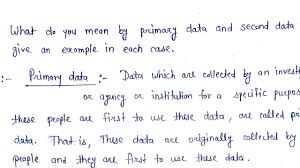 What do you mean by primary data and second data
give an example in each case.
:- Primary data :- Data which are collected by an investi
or agency or institution for a specific purpose
these people are first to use these data, are called pri
data. That is, These data are originally collected by
people and they are first to use these data.